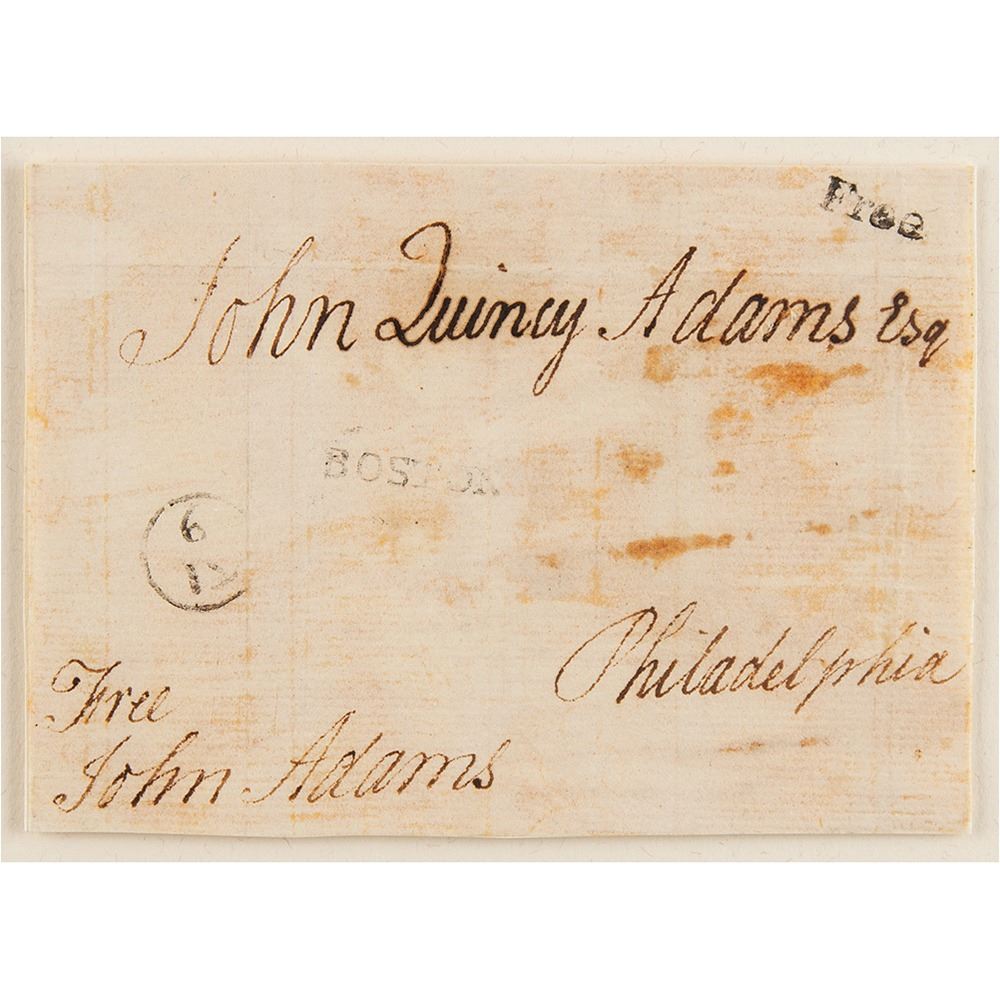 Free
John Quincy Adams Esq
BOSTON
6
12
Philadelphia
Free
John Adams